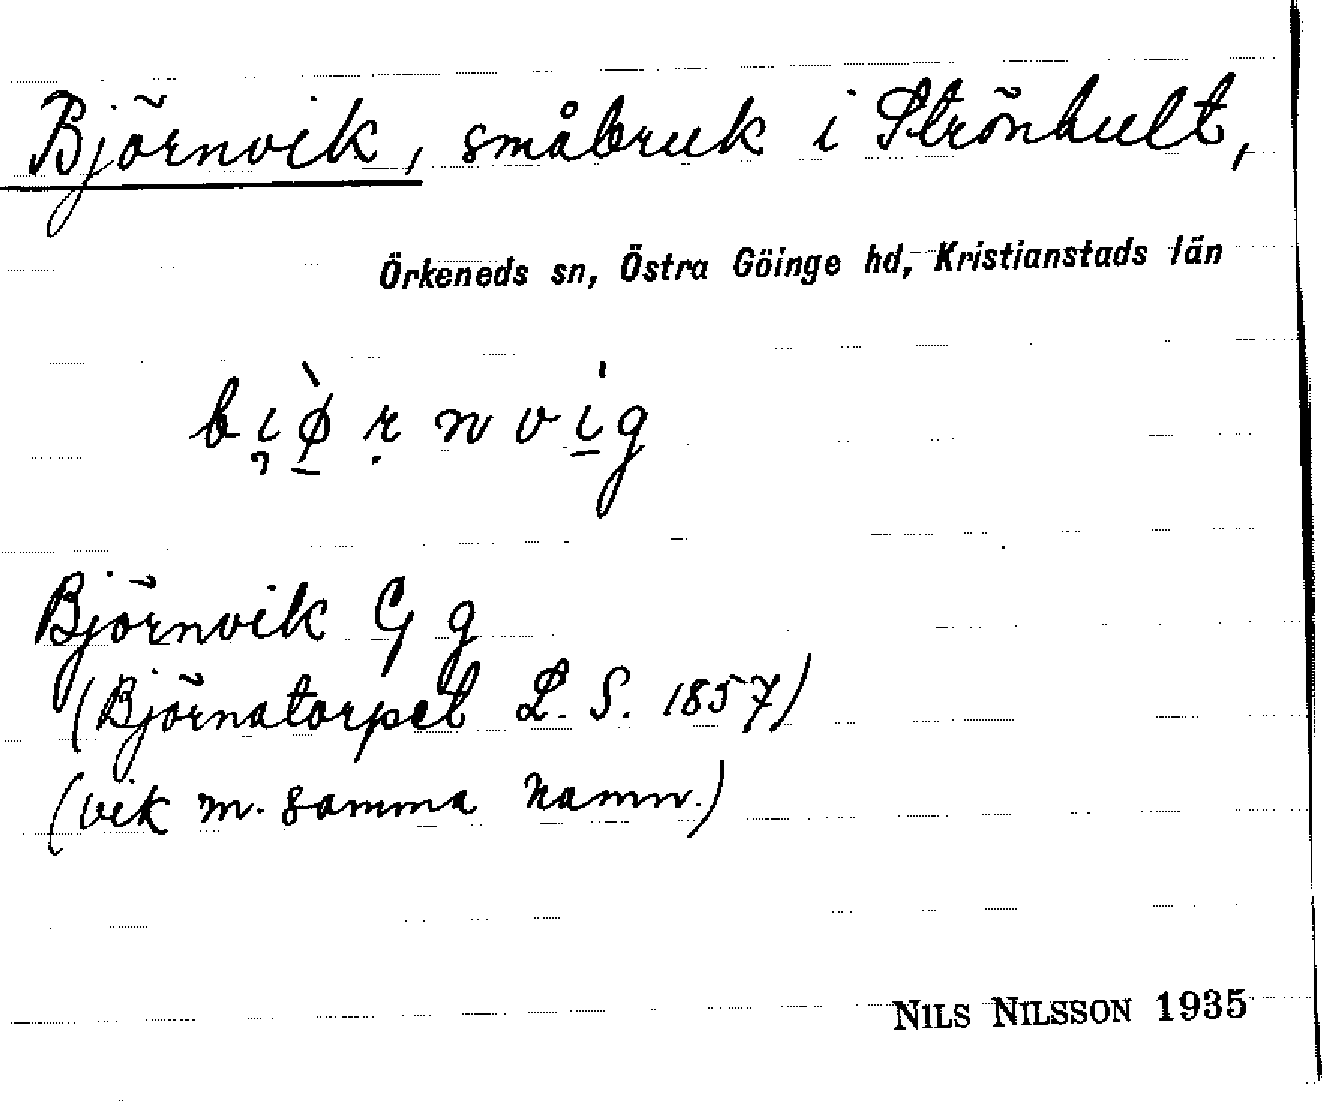 Björnvik, småbruk i Strönhult,
Örkeneds sn, Östra Göinge hd, Kristianstads län
bi̯ø̱̀ṛnvi̱̍g
Björnvik G g
(Björnatorpet L. S. 1857)
(vik m. samma namn.)
NILS NILSSON 1935